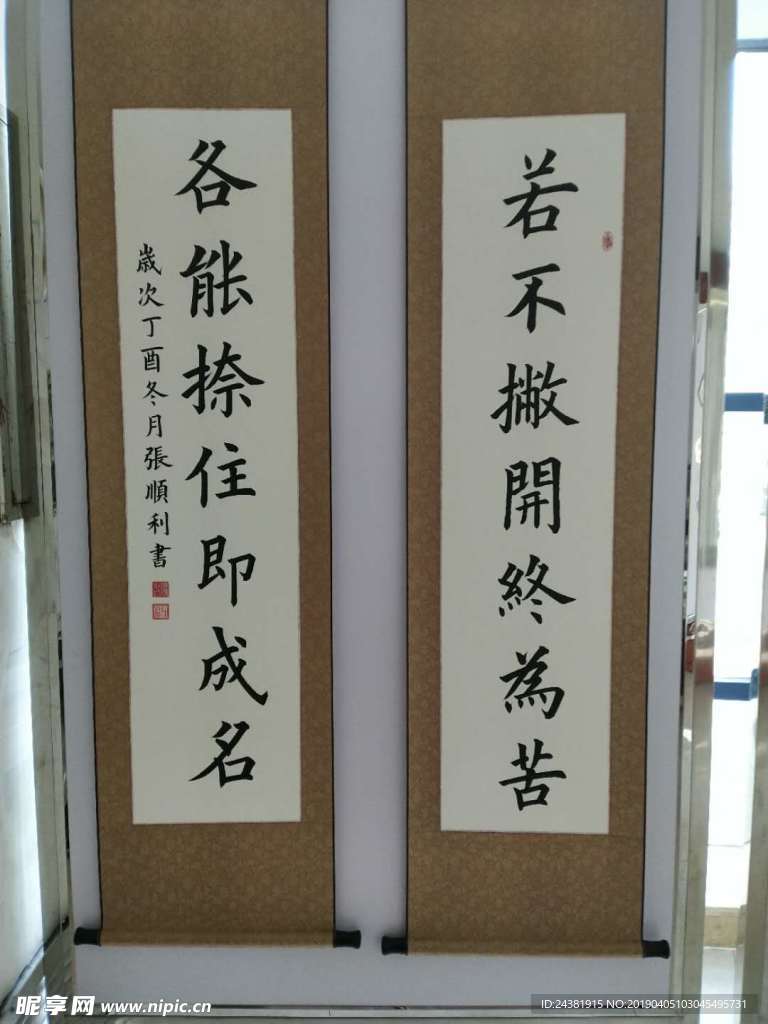 若不撇開終為苦
各能捺住即成名
歲次丁酉冬月張順利書
昵享网 www.nipic.cn
ID:24381915 NO:20190405103045495731